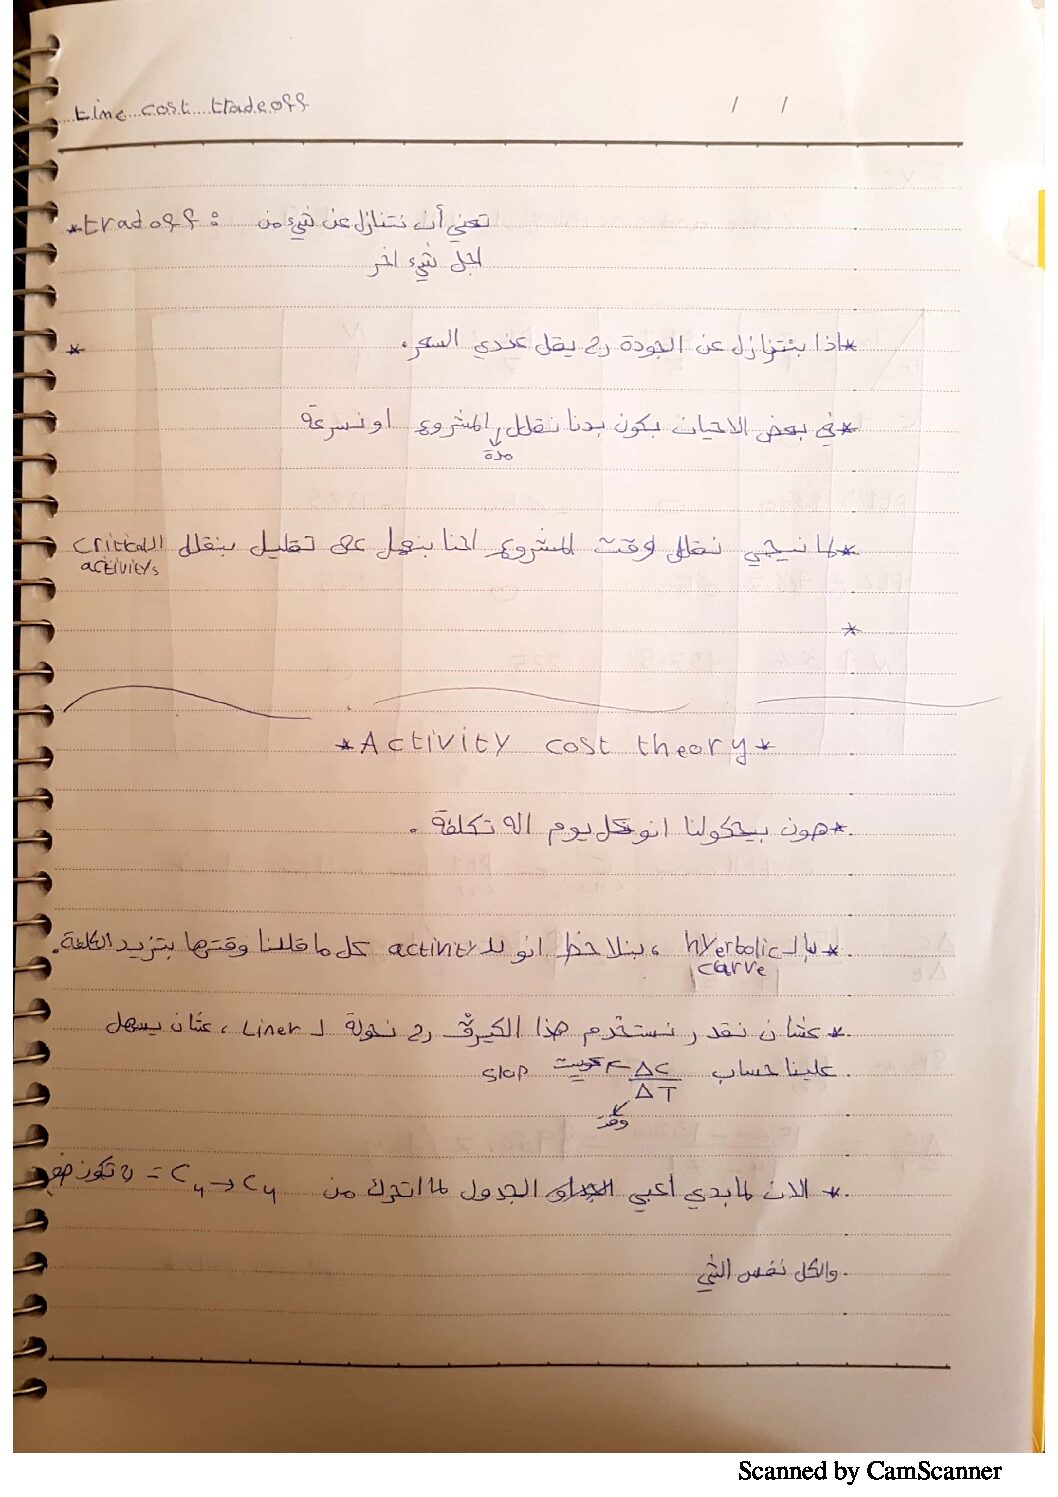 time cost tradeoff / /
*tradoff : تعني أن نتنازل عن شيء من
اجل شيء اخر
*اذا بنتنازل عن الجودة رح يقل عندي السعر. *
*في بعض الاحيان بكون بدنا نقلل المشروع او نسرعة
مدة
*لما نيجي نقلل وقت المشروع احنا بنعمل على تقليل بنقلل الـ critical
activitys
*
*Activity cost theory*
*هون بيحكولنا انو كل يوم اله تكلفة .
*بالـ hyerbolic ، بنلاحظ انو للـ activity كل ما قللنا وقتها بتزيد الكلفة.
curve
*عشان نقدر نستخدم هذا الكيرف رح نحولة لـ Liner ، عشان يسهل
علينا حساب slop ΔC كوست
ΔT
وقت
* الان لما بدي اعبي الجدول لما اتحرك من C4 → C4 =
والكل نفس الشي
Scanned by CamScanner